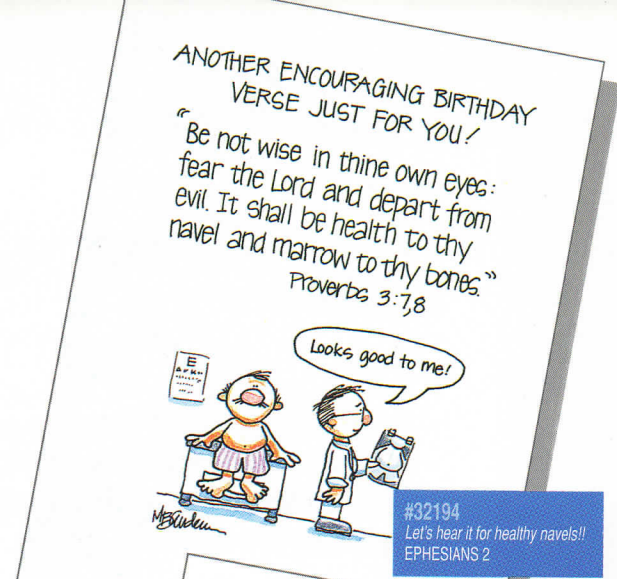 ANOTHER ENCOURAGING BIRTHDAY
VERSE JUST FOR YOU!
"Be not wise in thine own eyes:
fear the Lord and depart from
evil. It shall be health to thy
navel and marrow to thy bones."
Proverbs 3:7,8
Looks good to me!
E
#32194
Let's hear it for healthy navels!!
EPHESIANS 2